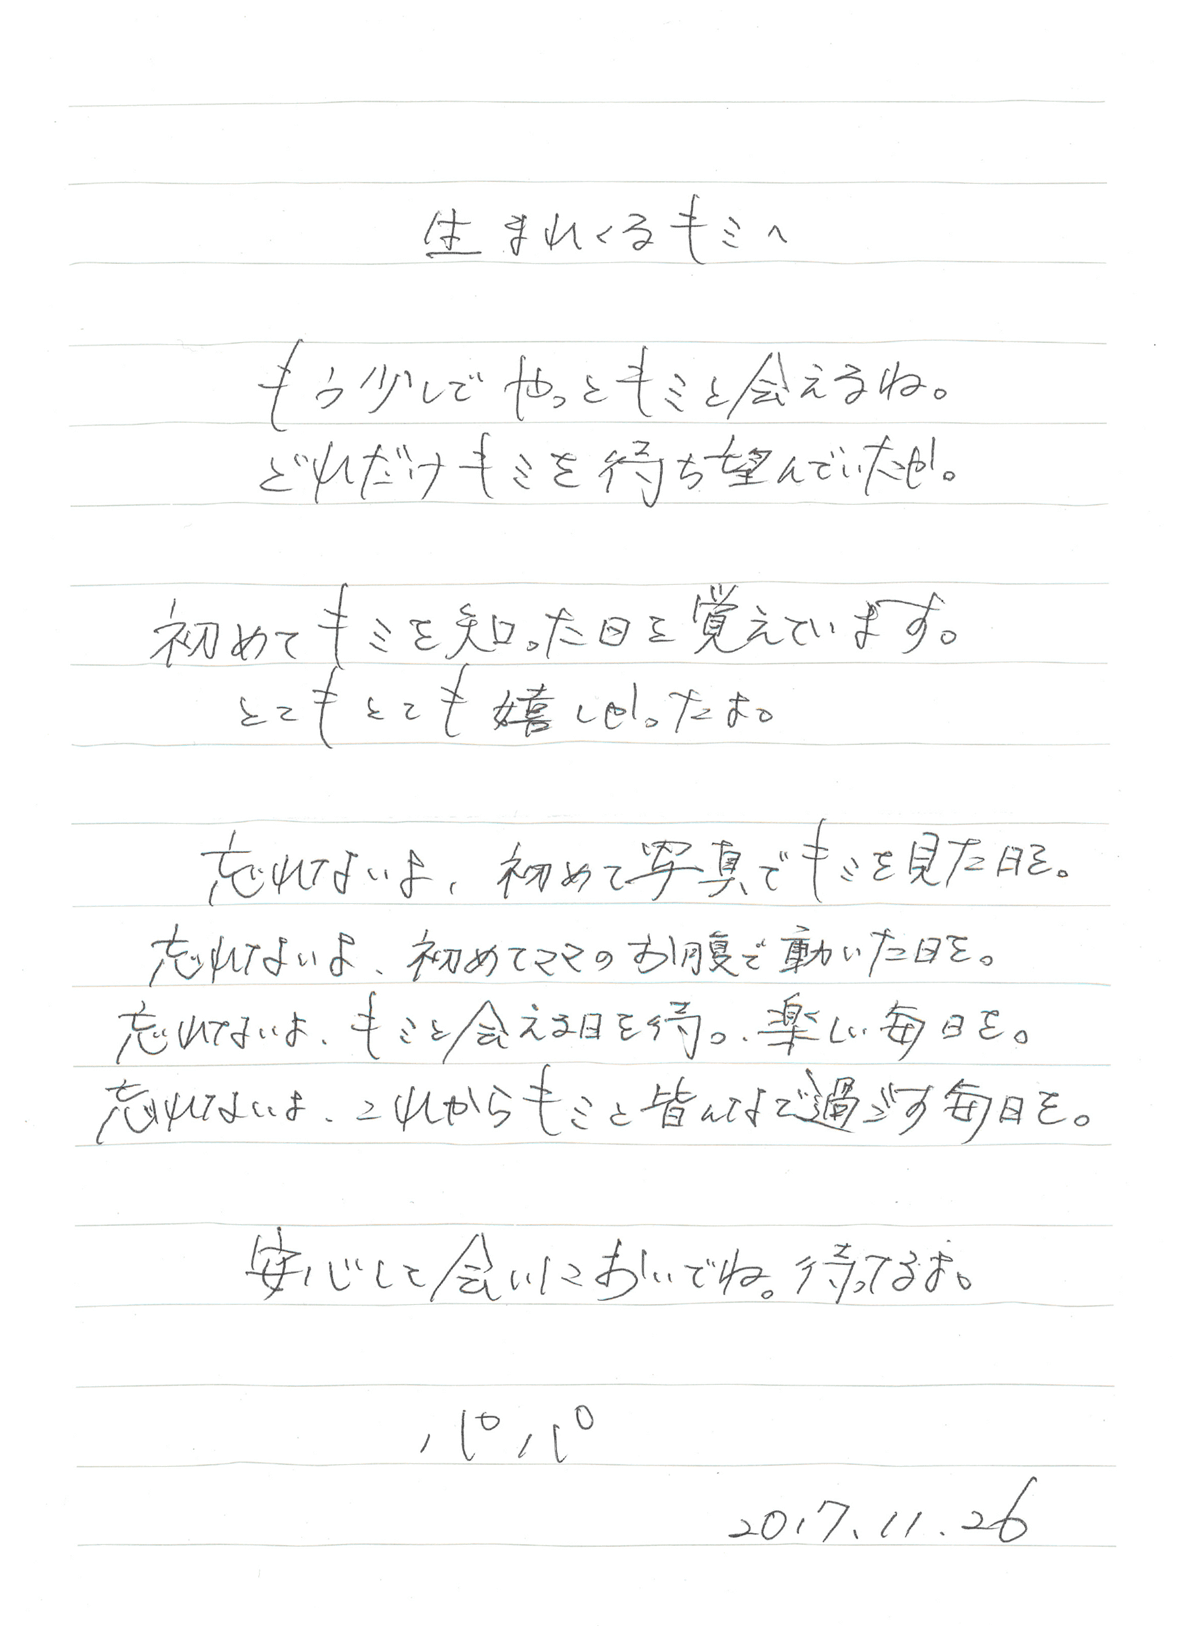 生まれくるキミへ
もう少しでやっとキミと会えるね。
どれだけキミを待ち望んでいたか。
初めてキミを知った日を覚えています。
とてもとても嬉しかったよ。
忘れないよ、初めて写真でキミを見た日を。
忘れないよ、初めてママのお腹で動いた日を。
忘れないよ、キミと会える日を待つ、楽しい毎日を。
忘れないよ、これからキミと皆んなで過ごす毎日を。
安心して会いにおいでね。待ってるよ。
パパ
2017.11.26